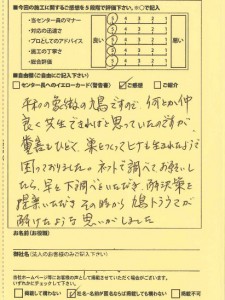 ■今回の施工に関するご感想を5段階で評価下さい。※○で記入
・当センター員のマナー 5 4 3 2 1
・対応の迅速さ 5 4 3 2 1
・プロとしてのアドバイス 良い 5 4 3 2 1 悪い
・施工の丁寧さ 5 4 3 2 1
・総合評価 5 4 3 2 1
■自由欄(ご自由にご記入下さい)
センター長へのイエローカード(警告書) ご感想 ご紹介
平和の象徴の鳩ですので、何とか仲
良く共生できればと思っていたのですが、
糞害もひどく、巣をつくってヒナも生まれたようで
困っておりました。ネットで調べてお願いし
たら、早々下調べいただき、解決策を
提案いただき、その時から鳩トラウマが
解けたような思いがしました
お名前(お役職)
御社名(法人のお客様のみご記入下さい)
当社ホームページ等にお客様の声として掲載させていただく場合がございます。
いずれかにチェックして下さい。
掲載して構わない 社名・名前が匿名ならば掲載しても構わない 掲載不可